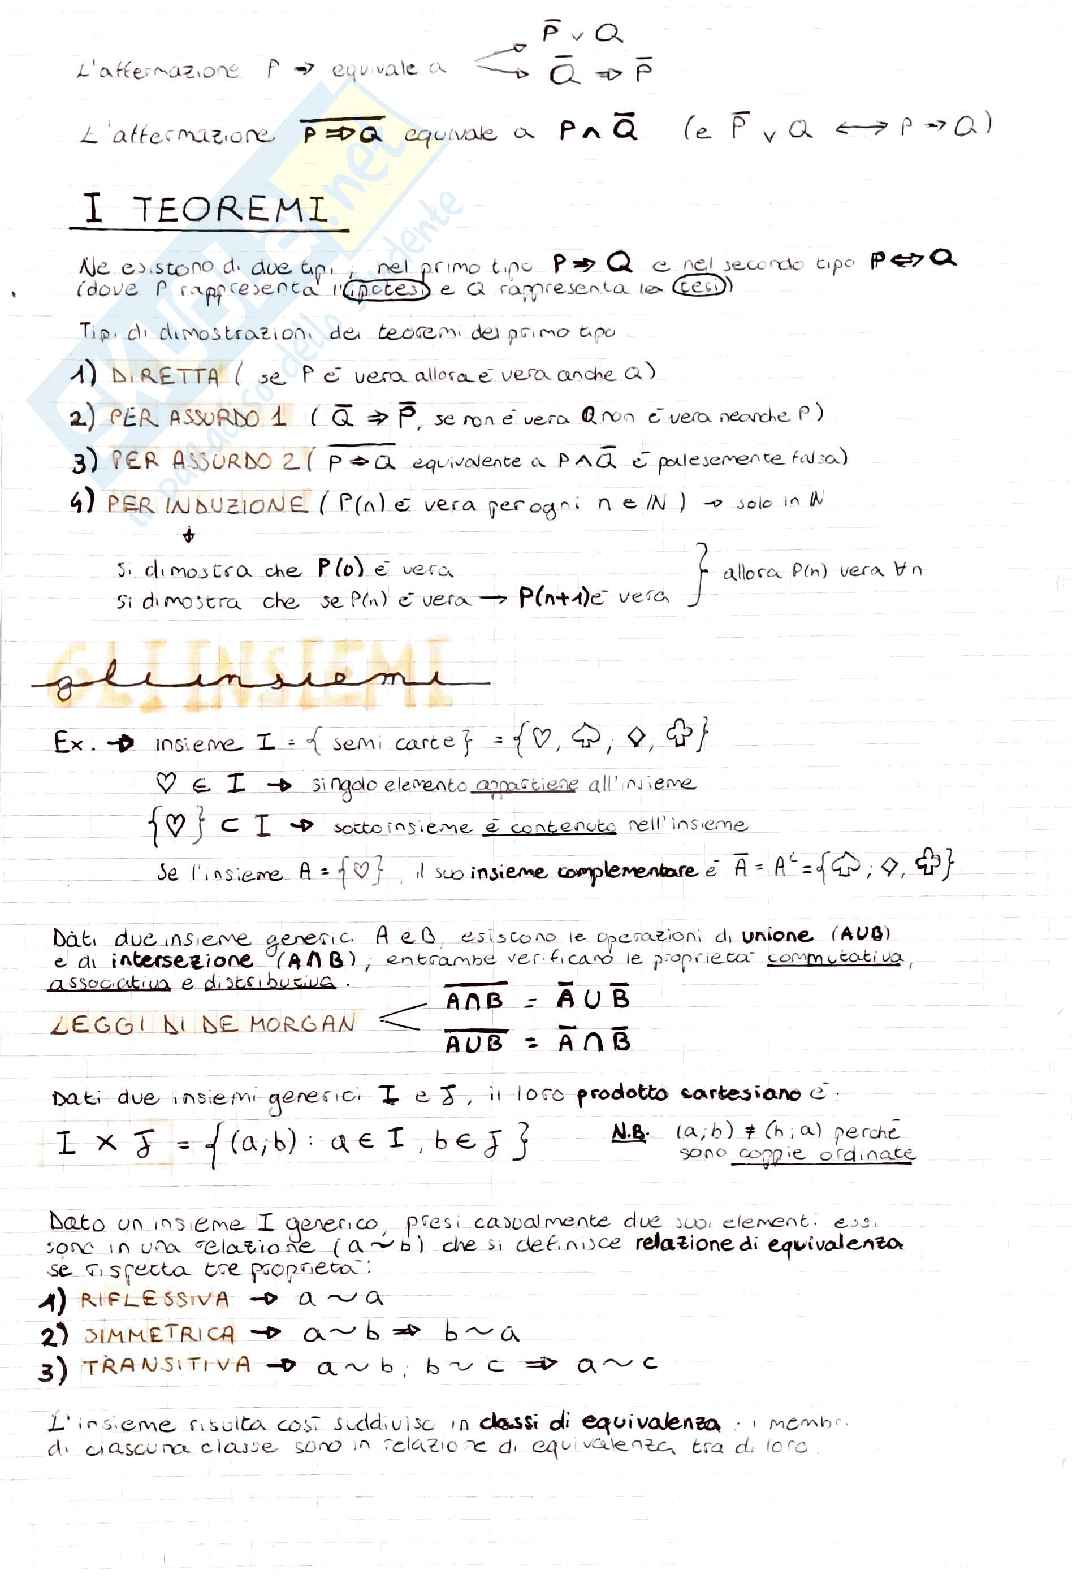 P̅ ∨ Q
L'affermazione P → equivale a Q̅ ⇒ P̅
L'affermazione \overline{P⇒Q} equivale a P∧Q̅ (e P̅ ∨ Q ⟷ P → Q)
I TEOREMI
Ne esistono di due tipi, nel primo tipo P⇒Q e nel secondo tipo P⇔Q
(dove P rappresenta l'ipotesi e Q rappresenta la tesi)
Tipi di dimostrazioni dei teoremi del primo tipo
1) DIRETTA ( se P è vera allora è vera anche Q)
2) PER ASSURDO 1 ( Q̅ ⇒ P̅, se non è vera Q non è vera neanche P)
3) PER ASSURDO 2 ( \overline{P⇒Q} equivalente a P∧Q̅ è palesemente falsa)
4) PER INDUZIONE ( P(n) è vera per ogni n ∈ ℕ ) → solo in ℕ
↓
Si dimostra che P(0) è vera
Si dimostra che se P(n) è vera → P(n+1) è vera } allora P(n) vera ∀n
GLI INSIEMI
gli insiemi
Ex. → insieme I = { semi carte } = {♡, ♤; ◇, ♧}
♡ ∈ I → singolo elemento appartiene all'insieme
{♡} ⊂ I → sottoinsieme è contenuto nell'insieme
Se l'insieme A = {♡}, il suo insieme complementare è A̅ = Aᶜ = {♤; ◇, ♧}
Dati due insieme generici A e B, esistono le operazioni di unione (A∪B)
e di intersezione (A∩B), entrambe verificano le proprietà commutativa,
associativa e distributiva.
LEGGI DI DE MORGAN \overline{A∩B} = A̅ ∪ B̅
\overline{A∪B} = A̅ ∩ B̅
Dati due insiemi generici I e J, il loro prodotto cartesiano è:
I × J = {(a;b) : a ∈ I, b ∈ J} N.B. (a;b) ≠ (b;a) perchè
sono coppie ordinate
Dato un insieme I generico, presi casualmente due suoi elementi essi
sono in una relazione (a ~ b) che si definisce relazione di equivalenza
se rispetta tre proprietà:
1) RIFLESSIVA → a ~ a
2) SIMMETRICA → a ~ b ⇒ b ~ a
3) TRANSITIVA → a ~ b; b ~ c ⇒ a ~ c
L'insieme risulta così suddiviso in classi di equivalenza: i membri
di ciascuna classe sono in relazione di equivalenza tra di loro.